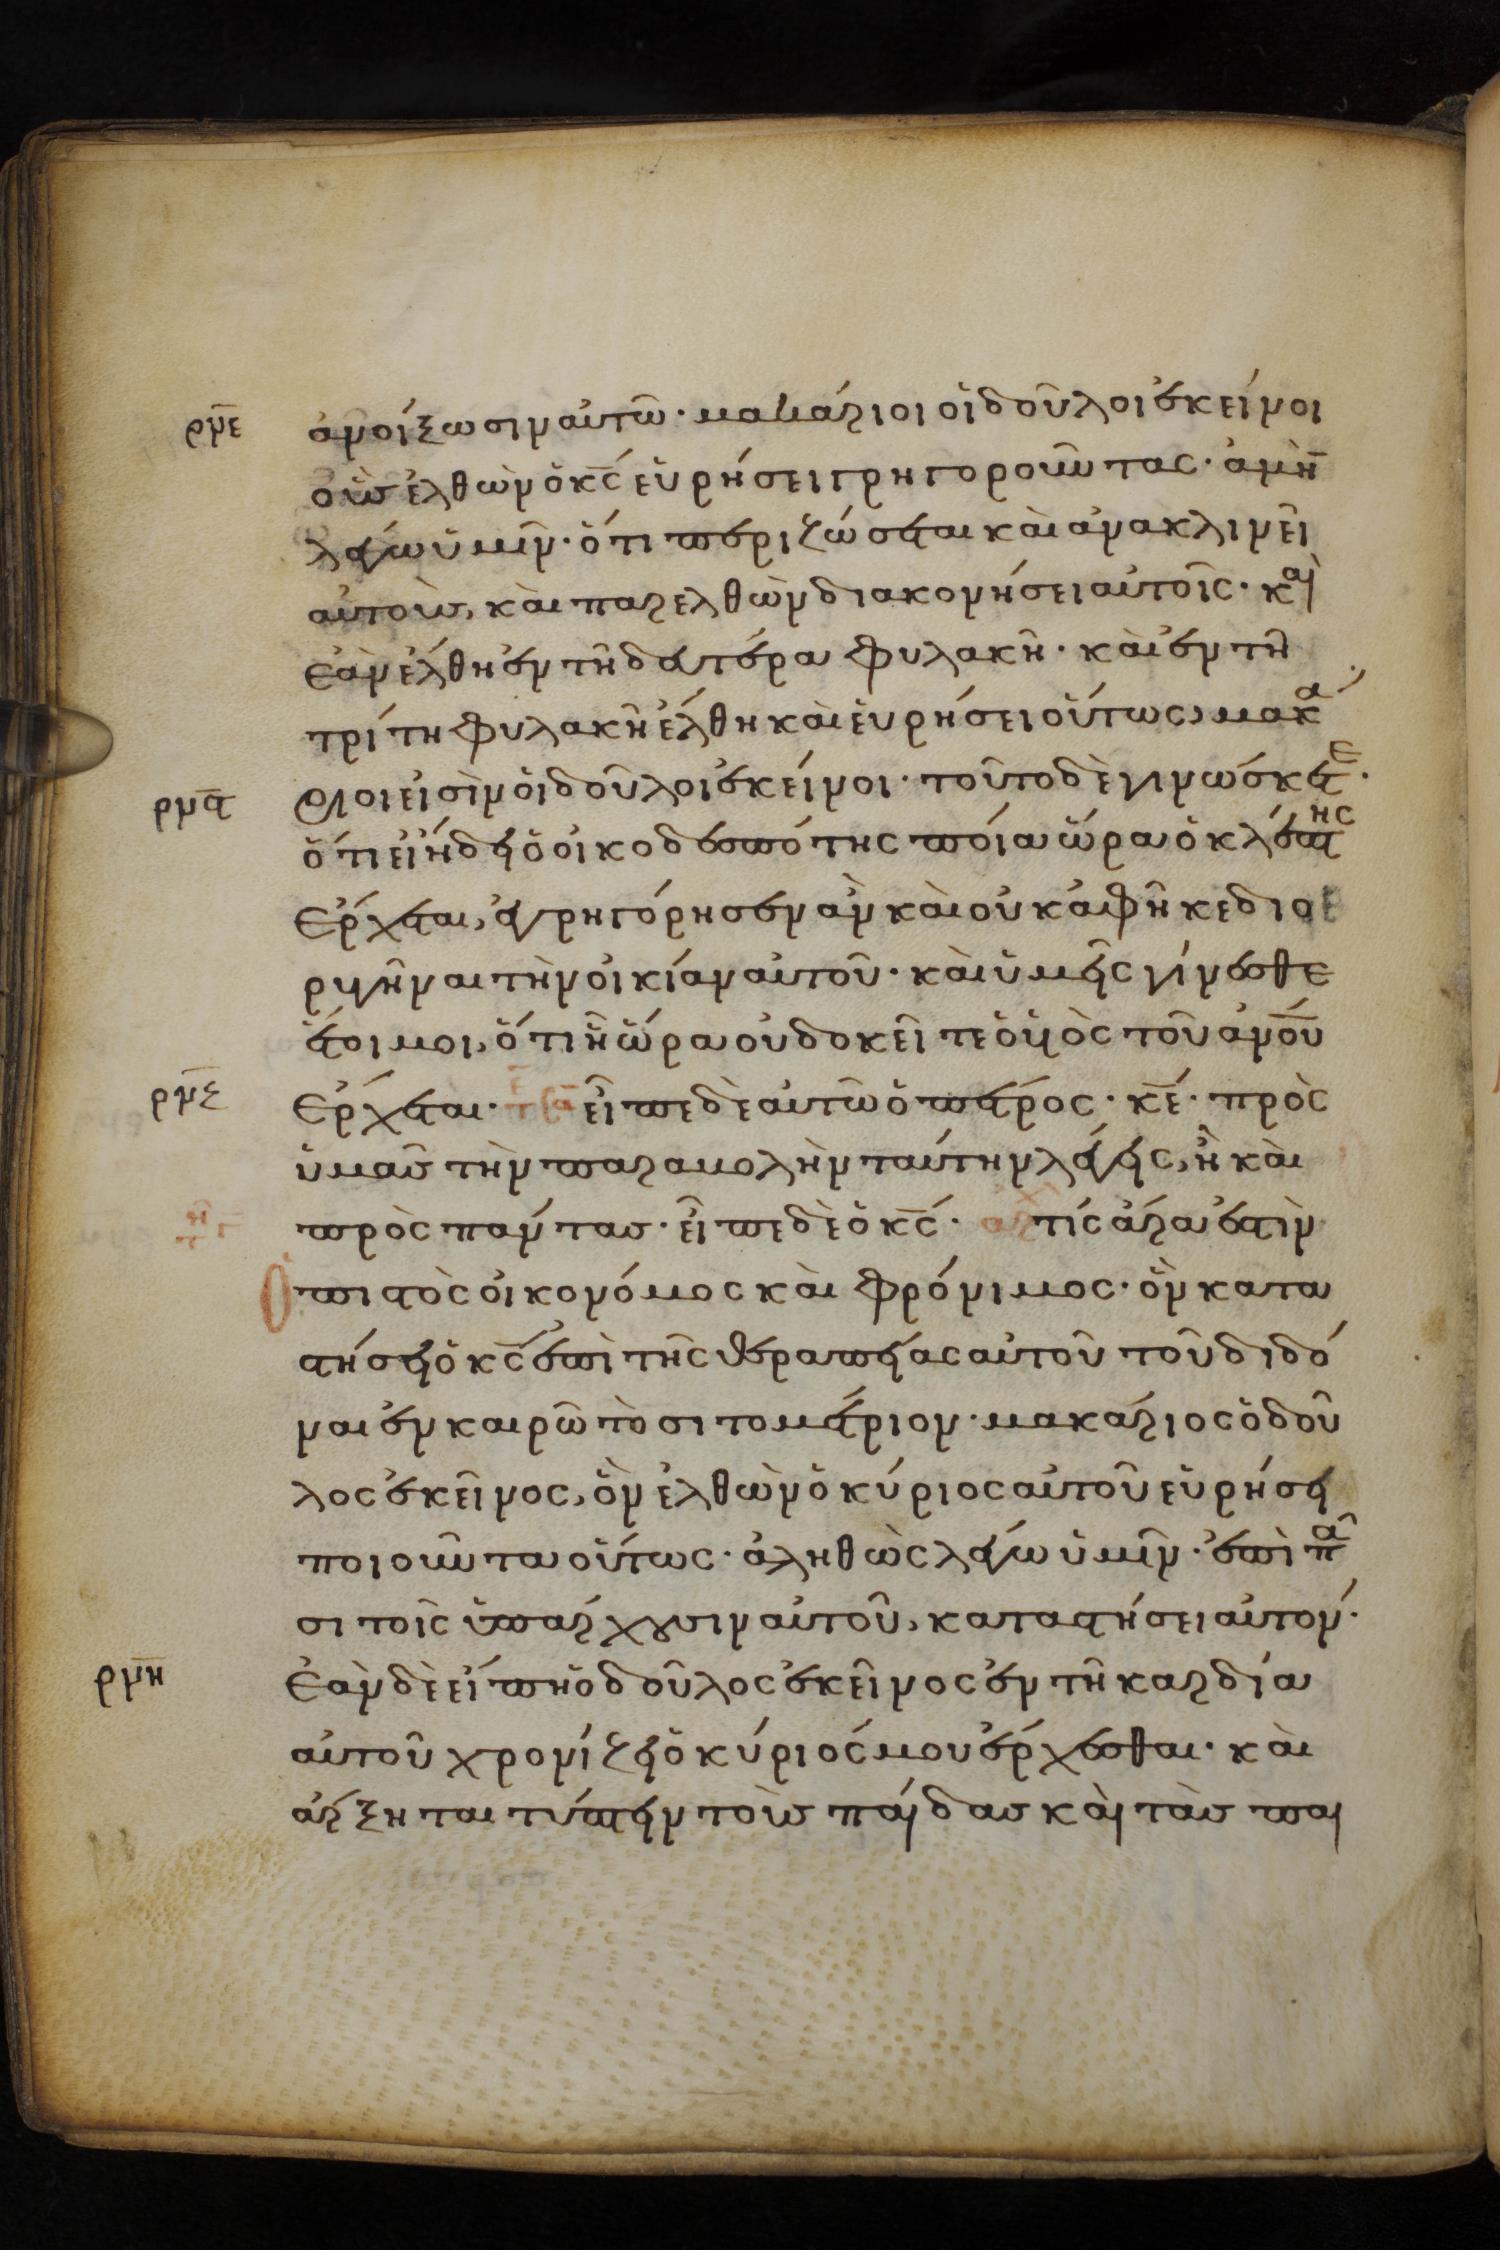 ρμε ἀνοίξωσιν αὐτῶ· μακάριοι οἱ δοῦλοι ἐκείνοι
οὓς ἐλθὼν ὁ κς εὑρήσει γρηγοροῦντας· ἀμὴν
λέγω ὑμῖν· ὅτι περιζώσεται καὶ ἀνακλινεῖ
αὐτοὺς, καὶ παρελθὼν διακονήσει αὐτοῖς· καὶ
ἐὰν ἔλθη ἐν τῆ δευτέρα φυλακῆ· καὶ ἐν τῆ
τρίτη φυλακῆ ἔλθη καὶ εὑρήσει οὕτως, μακά
ρμϛ ριοι εἰσὶν οἱ δοῦλοι ἐκείνοι· τοῦτο δὲ γινώσκετε·
ὅτι εἰ ἤδει ὁ οἰκοδεσπότης ποία ὥρα ὁ κλέπτης
ἔρχεται, ἐγρηγόρησεν ἂν καὶ οὐκ ἀφῆκε διο
ρυγῆναι τὴν οἰκίαν αὐτοῦ· καὶ ὑμεῖς γίνεσθε
ἕτοιμοι, ὅτι ἧ ὥρα οὐ δοκεῖτε ὁ υἱὸς τοῦ ἀνου
ρμζ ἔρχεται· εἶπε δὲ αὐτῶ ὁ πέτρος· κε· πρὸς
ὑμᾶς τὴν παραβολὴν ταύτην λέγεις, ἢ καὶ
πρὸς πάντας· εἶπε δὲ ὁ κς· τίς ἄρα ἐστὶν
Ὁ πιστὸς οἰκονόμος καὶ φρόνιμος· ὃν κατα
στήσει ὁ κς ἐπὶ τῆς θεραπείας αὐτοῦ τοῦ διδό
ναι ἐν καιρῶ τὸ σιτομέτριον· μακάριος ὁ δοῦ
λος ἐκεῖνος, ὃν ἐλθὼν ὁ κύριος αὐτοῦ εὑρήσει
ποιοῦντα οὕτως· ἀληθῶς λέγω ὑμῖν· ἐπὶ πᾶ
σι τοῖς ὑπάρχουσιν αὐτοῦ, καταστήσει αὐτόν·
ρμη Ἐὰν δὲ εἴπη ὁ δοῦλος ἐκεῖνος ἐν τῆ καρδία
αὐτοῦ χρονίζει ὁ κύριός μου ἔρχεσθαι· καὶ
ἄρξηται τύπτειν τοὺς παῖδας καὶ τὰς παι